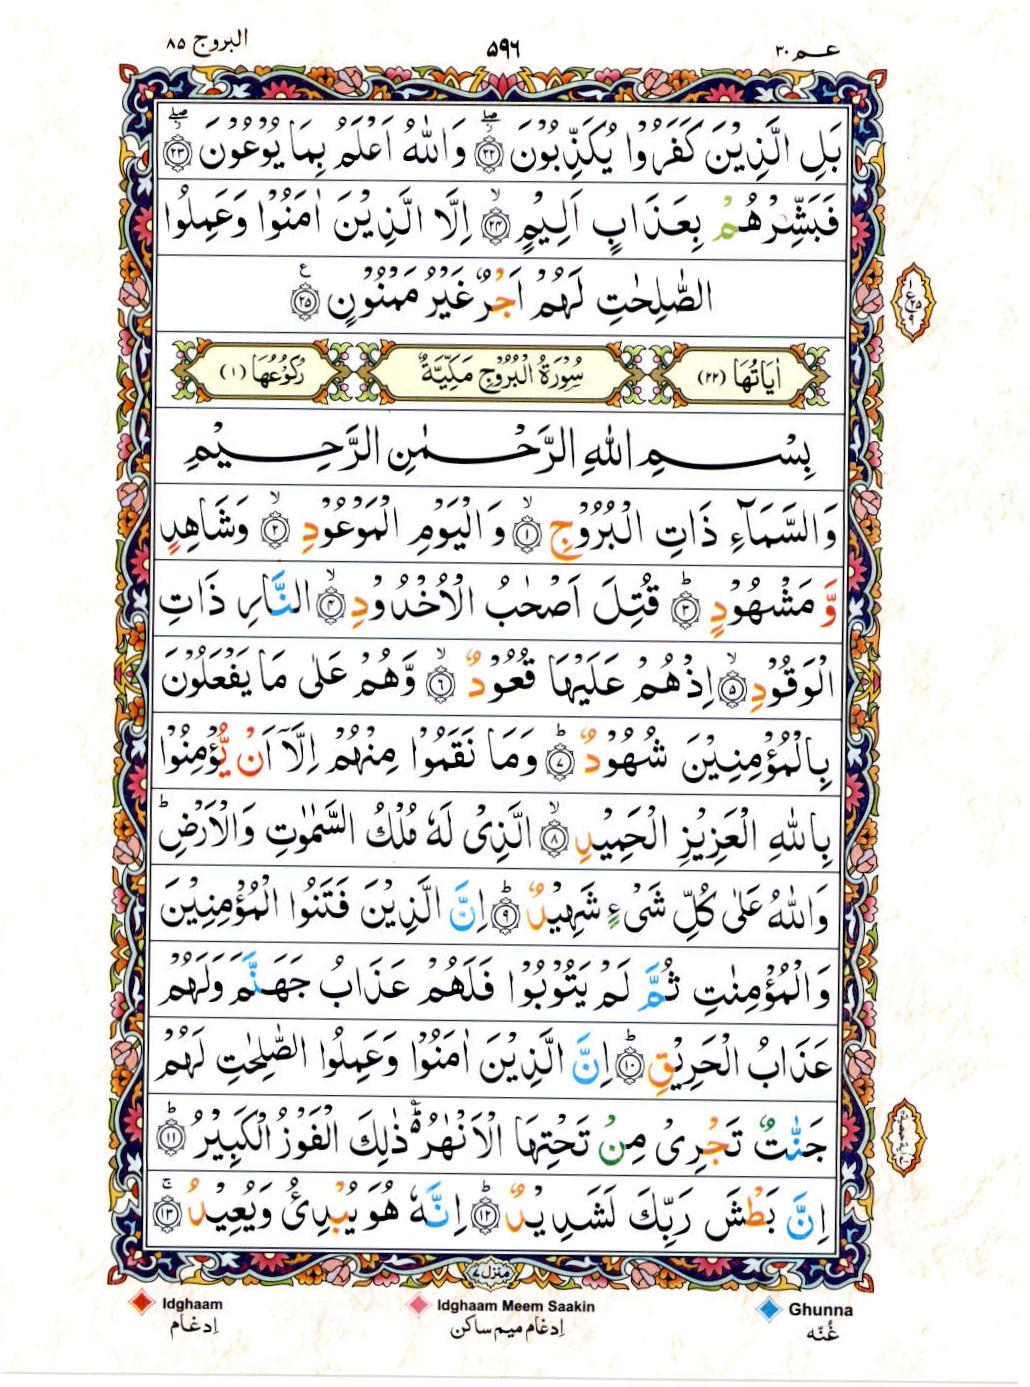 عـم ۳۰
۵۹۶
البروج ۸۵
بَلِ الَّذِیْنَ کَفَرُوْا یُکَذِّبُوْنَ ﴿۲۲﴾ وَاللّٰهُ اَعْلَمُ بِمَا یُوْعُوْنَ ﴿۲۳﴾
فَبَشِّرْهُمْ بِعَذَابٍ اَلِیْمٍ ﴿۲۴﴾ اِلَّا الَّذِیْنَ اٰمَنُوْا وَعَمِلُوا
الصّٰلِحٰتِ لَهُمْ اَجْرٌ غَیْرُ مَمْنُوْنٍ ﴿۲۵﴾
اٰیَاتُهَا (۲۲) سُوْرَةُ الْبُرُوْجِ مَکِّیَّةٌ رُکُوْعُهَا (۱)
بِسْمِ اللّٰهِ الرَّحْمٰنِ الرَّحِیْمِ
وَالسَّمَآءِ ذَاتِ الْبُرُوْجِ ﴿۱﴾ وَالْیَوْمِ الْمَوْعُوْدِ ﴿۲﴾ وَشَاهِدٍ
وَّ مَشْهُوْدٍ ﴿۳﴾ قُتِلَ اَصْحٰبُ الْاُخْدُوْدِ ﴿۴﴾ النَّارِ ذَاتِ
الْوَقُوْدِ ﴿۵﴾ اِذْ هُمْ عَلَیْهَا قُعُوْدٌ ﴿۶﴾ وَّهُمْ عَلٰی مَا یَفْعَلُوْنَ
بِالْمُؤْمِنِیْنَ شُهُوْدٌ ﴿۷﴾ وَمَا نَقَمُوْا مِنْهُمْ اِلَّاۤ اَنْ یُّؤْمِنُوْا
بِاللّٰهِ الْعَزِیْزِ الْحَمِیْدِ ﴿۸﴾ الَّذِیْ لَهٗ مُلْکُ السَّمٰوٰتِ وَالْاَرْضِ ؕ
وَاللّٰهُ عَلٰی کُلِّ شَیْءٍ شَهِیْدٌ ﴿۹﴾ اِنَّ الَّذِیْنَ فَتَنُوا الْمُؤْمِنِیْنَ
وَالْمُؤْمِنٰتِ ثُمَّ لَمْ یَتُوْبُوْا فَلَهُمْ عَذَابُ جَهَنَّمَ وَلَهُمْ
عَذَابُ الْحَرِیْقِ ﴿۱۰﴾ اِنَّ الَّذِیْنَ اٰمَنُوْا وَعَمِلُوا الصّٰلِحٰتِ لَهُمْ
جَنّٰتٌ تَجْرِیْ مِنْ تَحْتِهَا الْاَنْهٰرُ ؕ ذٰلِکَ الْفَوْزُ الْکَبِیْرُ ﴿۱۱﴾
اِنَّ بَطْشَ رَبِّکَ لَشَدِیْدٌ ﴿۱۲﴾ اِنَّهٗ هُوَ یُبْدِئُ وَیُعِیْدُ ﴿۱۳﴾
منزل ۷
Idghaam
Idghaam Meem Saakin
Ghunna
اِدغام
اِدغام میم ساکن
غُنّه